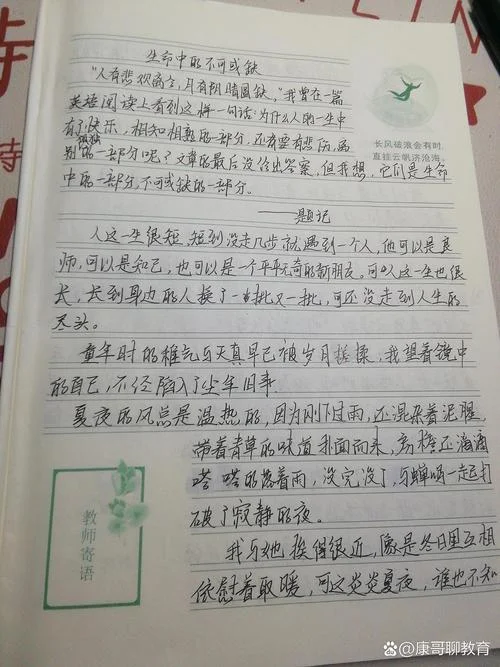 生命中的不可或缺
"人有悲欢离合，月有阴晴圆缺。"我曾在一篇
英语阅读上看到这样一句话：为什么人的一生中
有了快乐，相知相熟的一部分，还有要有悲伤，离
别孤独的一部分呢？文章的最后没给出答案，但我想，它们是生命
中的一部分，不可或缺的一部分。
——题记
人这一生很短，短到没走几步就遇到一个人，他可以是良
师，可以是知己，也可以是一个平平无奇的新朋友。可人这一生也很
长，长到身边的人换了一批又一批，可还没走到人生的
尽头。
童年时的稚气与天真早已被岁月揉，我望着镜中
的自己，不经陷入了尘年旧事
夏夜的风总是温热的，因为刚下过雨，还混杂着泥腥，
带着青草的味道扑面而来，房檐还滴滴
嗒嗒的落着雨，没完没了，与蝉鸣一起打
破了寂静的夜。
我与她挨得很近，像是冬日里互相
依慰着取暖，可这炎炎夏夜，谁也不知
长风破浪会有时，
直挂云帆济沧海。
教师寄语
康哥聊教育